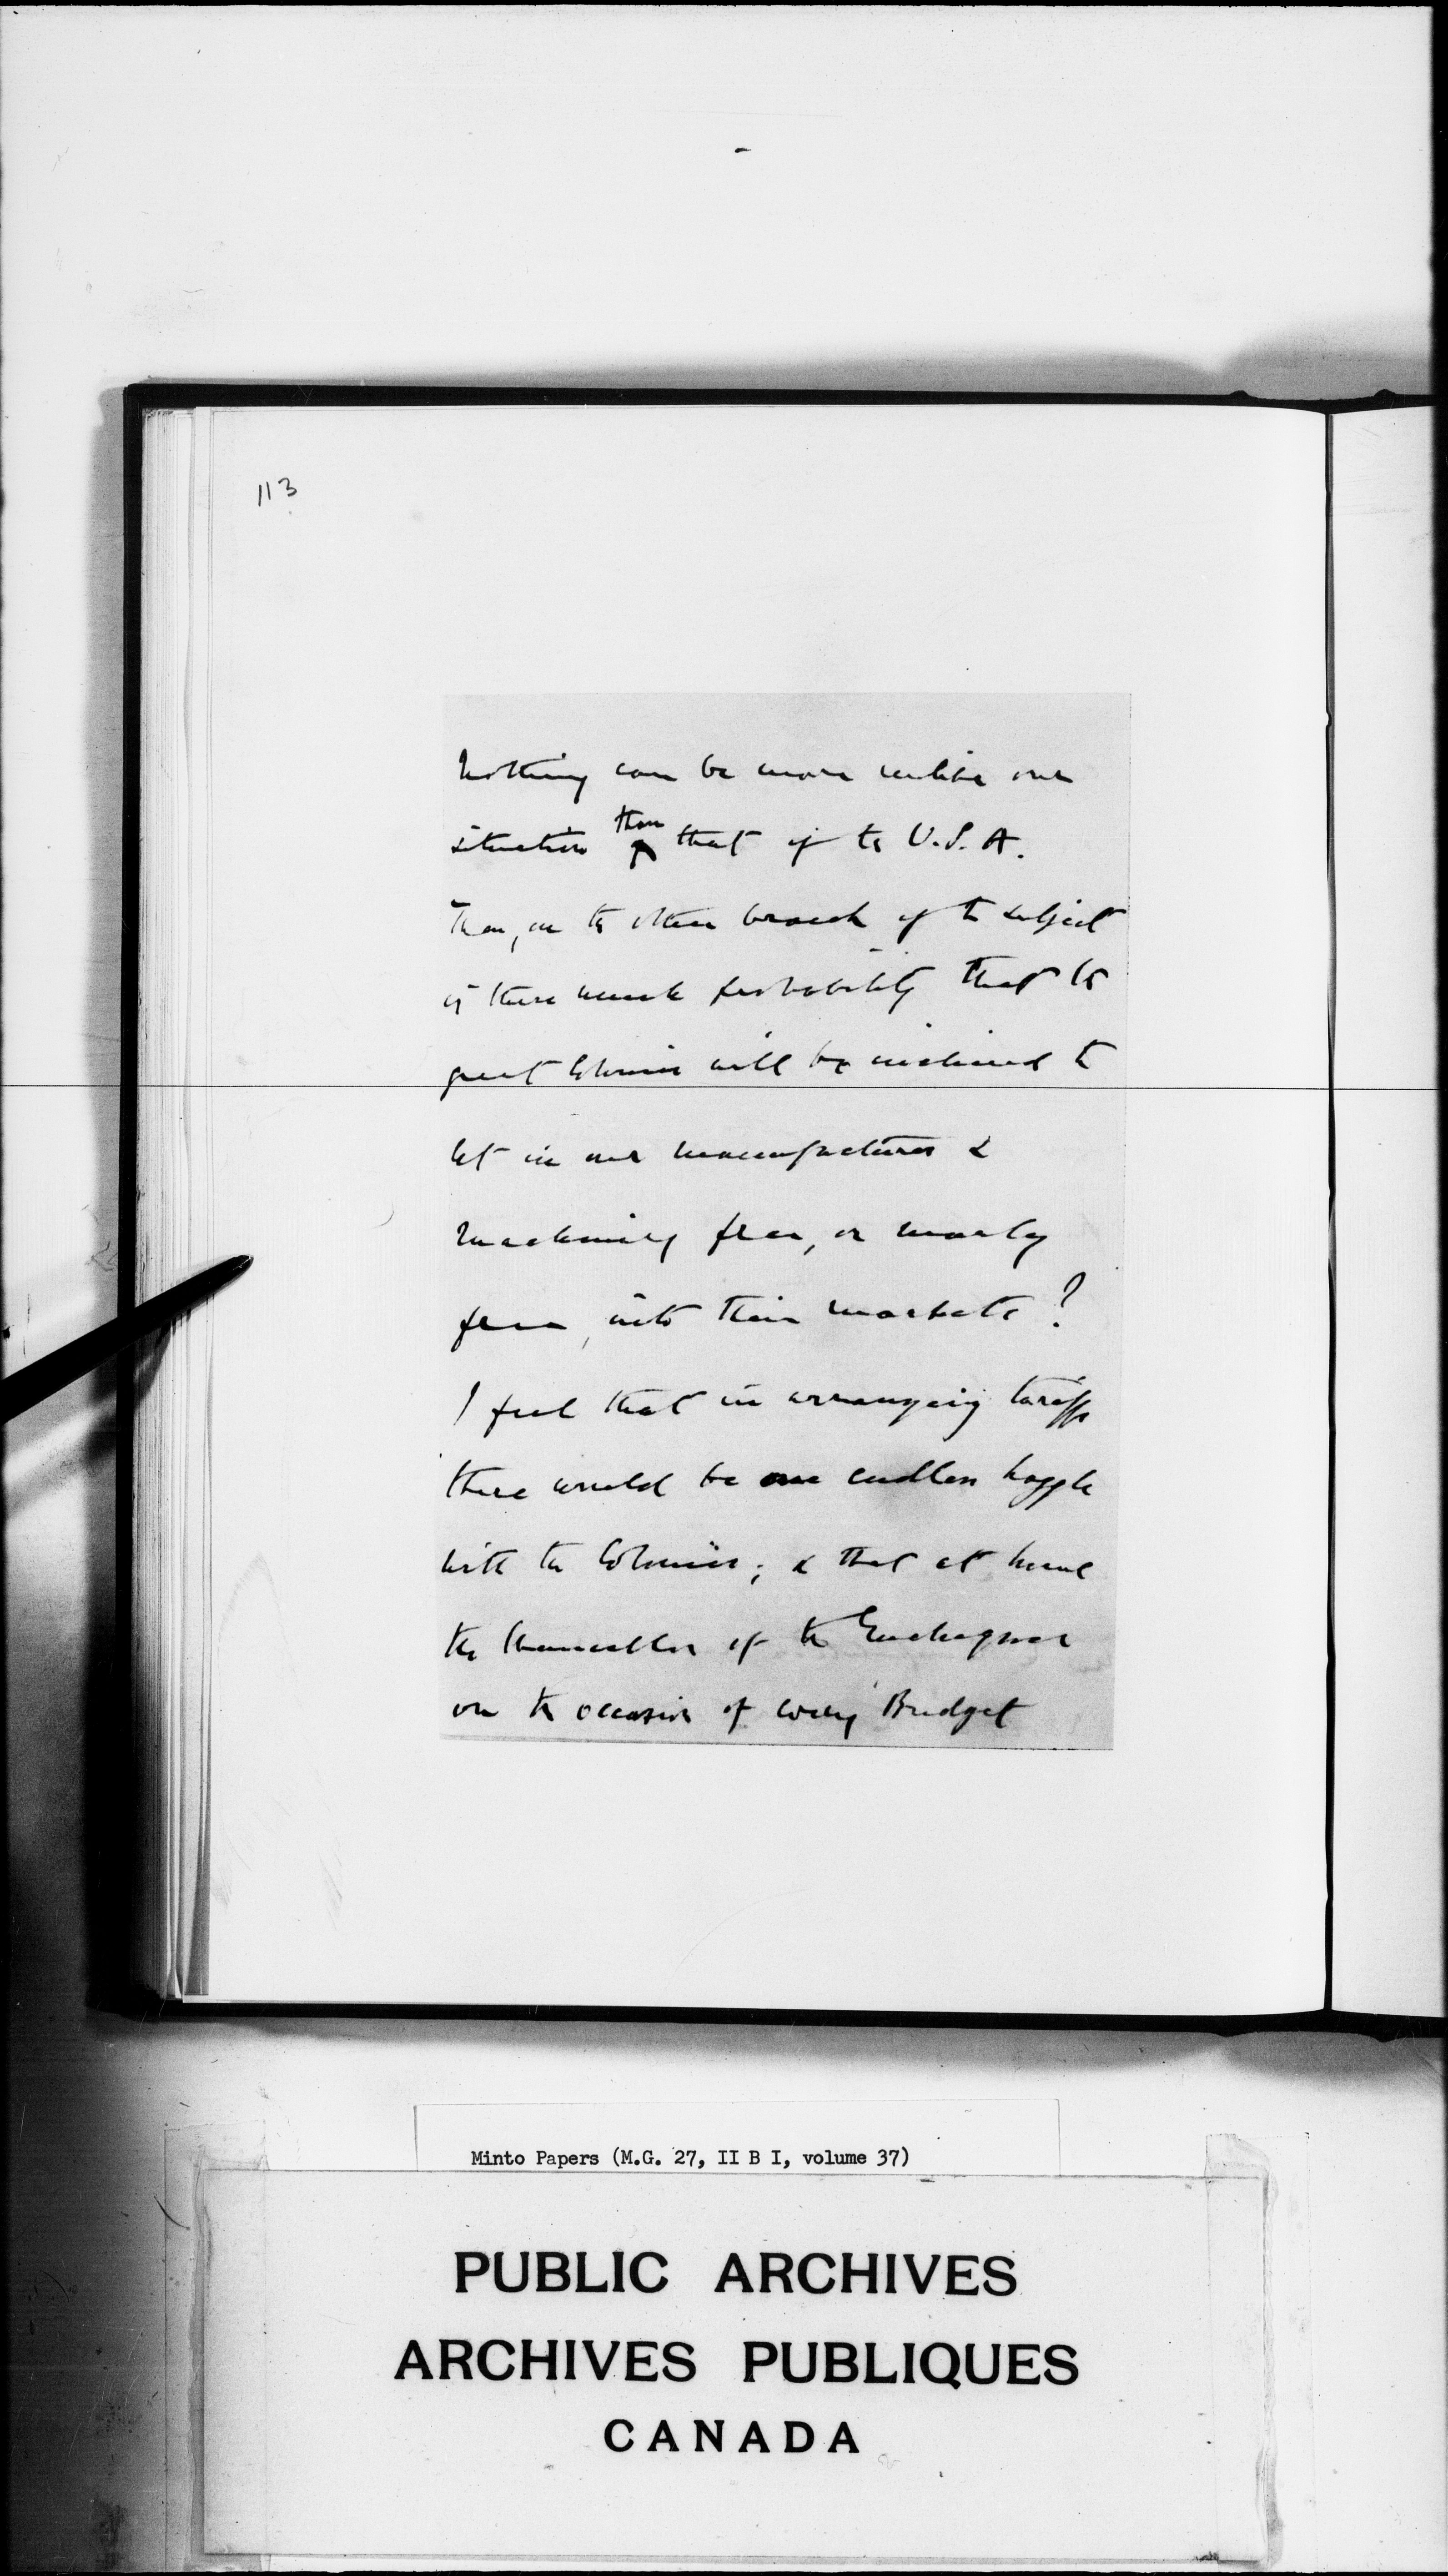 113
Nothing can be more unlike our
situation than that of the U.S.A.
Then, on the other branch of the subject
is there much probability that the
great Colonies will be inclined to
let in our manufactures &
machinery free, or nearly
free, into their markets?
I feel that in arranging tariffs
there would be one endless haggle
with the Colonies; & that at home
the Chancellor of the Exchequer
on the occasion of every Budget
Minto Papers (M.G. 27, II B I, volume 37)
PUBLIC ARCHIVES
ARCHIVES PUBLIQUES
CANADA